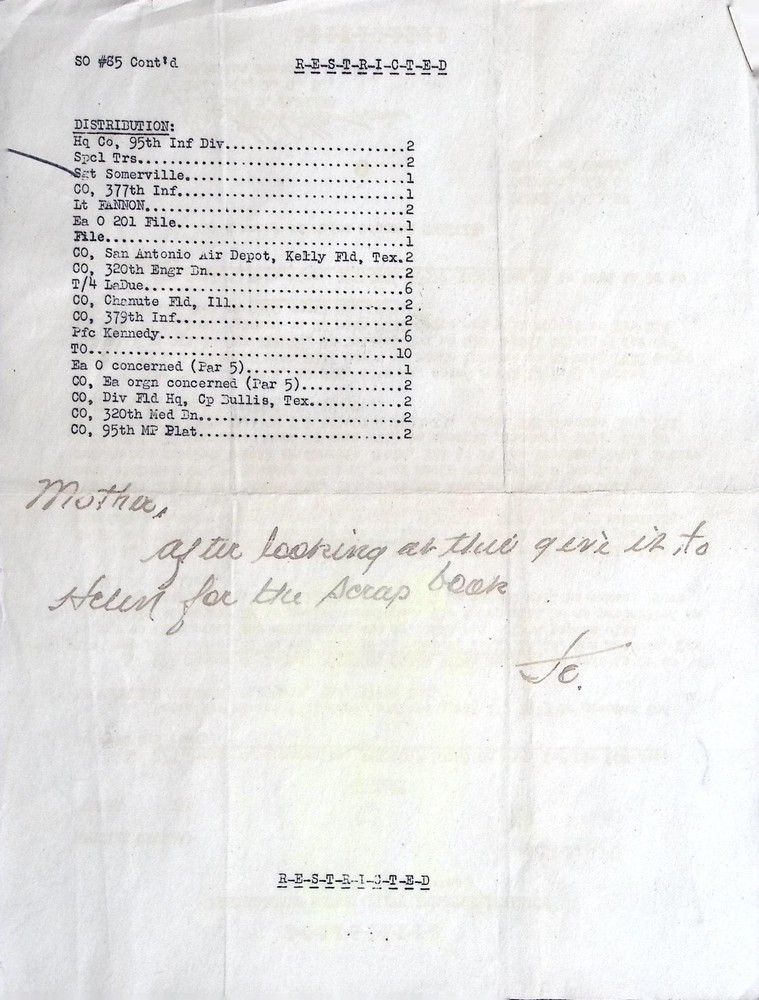 SO #85 Cont'd R-E-S-T-R-I-C-T-E-D
DISTRIBUTION:
Hq Co, 95th Inf Div.......................2
Spcl Trs..................................2
Sgt Somerville............................1
CO, 377th Inf.............................1
Lt FANNON.................................2
Ea O 201 File.............................1
File......................................1
CO, San Antonio Air Depot, Kelly Fld, Tex.2
CO, 320th Engr Bn.........................2
T/4 LaDue.................................6
CO, Chanute Fld, Ill......................2
CO, 379th Inf.............................2
Pfc Kennedy...............................6
TO.......................................10
Ea O concerned (Par 5)....................1
CO, Ea orgn concerned (Par 5).............2
CO, Div Fld Hq, Cp Bullis, Tex............2
CO, 320th Med Bn..........................2
CO, 95th MP Plat..........................2
Mother,
after looking at this give it to
Helen for the scrap book
Jo.
R-E-S-T-R-I-C-T-E-D